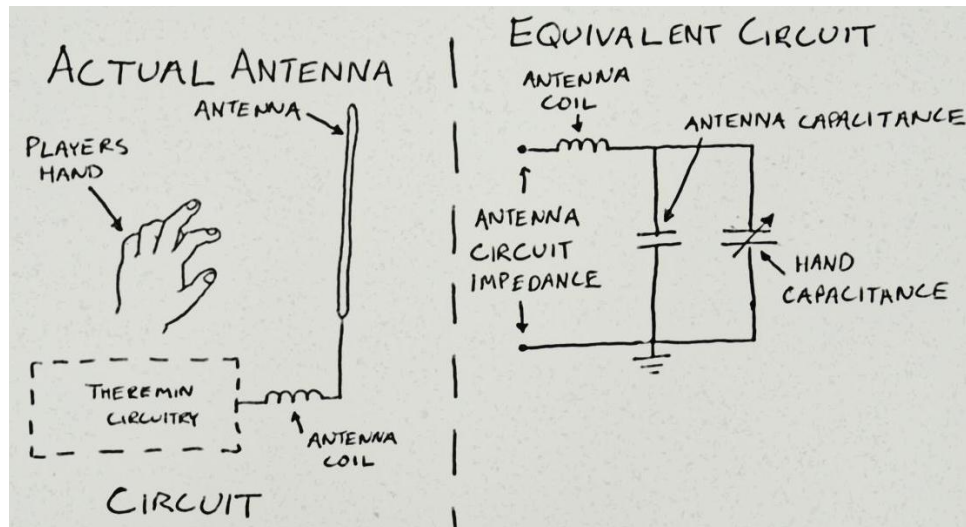 ACTUAL ANTENNA
ANTENNA
PLAYERS
HAND
THEREMIN
CIRCUITRY
ANTENNA
COIL
CIRCUIT
EQUIVALENT CIRCUIT
ANTENNA
COIL
ANTENNA CAPACITANCE
ANTENNA
CIRCUIT
IMPEDANCE
HAND
CAPACITANCE